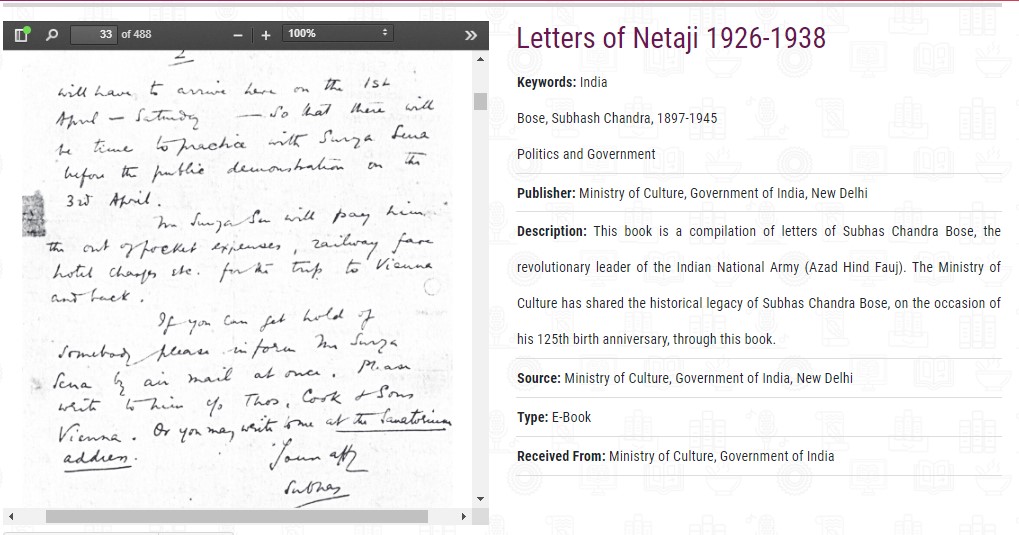 33 of 488
100%
2
will have to arrive here on the 1st
April — Saturday — So that there will
be time to practice with Surya Sena
before the public demonstration on the
3rd April.
Mr Surya Sen will pay him
the out of pocket expenses, railway fare
hotel charges etc. for the trip to Vienna
and back.
If you can get hold of
somebody please inform Mr Surya
Sena by air mail at once. Please
write to him c/o Thos, Cook & Sons
Vienna. Or you may write to me at the Sanatorium
address.
Yours affly
Subhas
Letters of Netaji 1926-1938
Keywords: India
Bose, Subhash Chandra, 1897-1945
Politics and Government
Publisher: Ministry of Culture, Government of India, New Delhi
Description: This book is a compilation of letters of Subhas Chandra Bose, the
revolutionary leader of the Indian National Army (Azad Hind Fauj). The Ministry of
Culture has shared the historical legacy of Subhas Chandra Bose, on the occasion of
his 125th birth anniversary, through this book.
Source: Ministry of Culture, Government of India, New Delhi
Type: E-Book
Received From: Ministry of Culture, Government of India